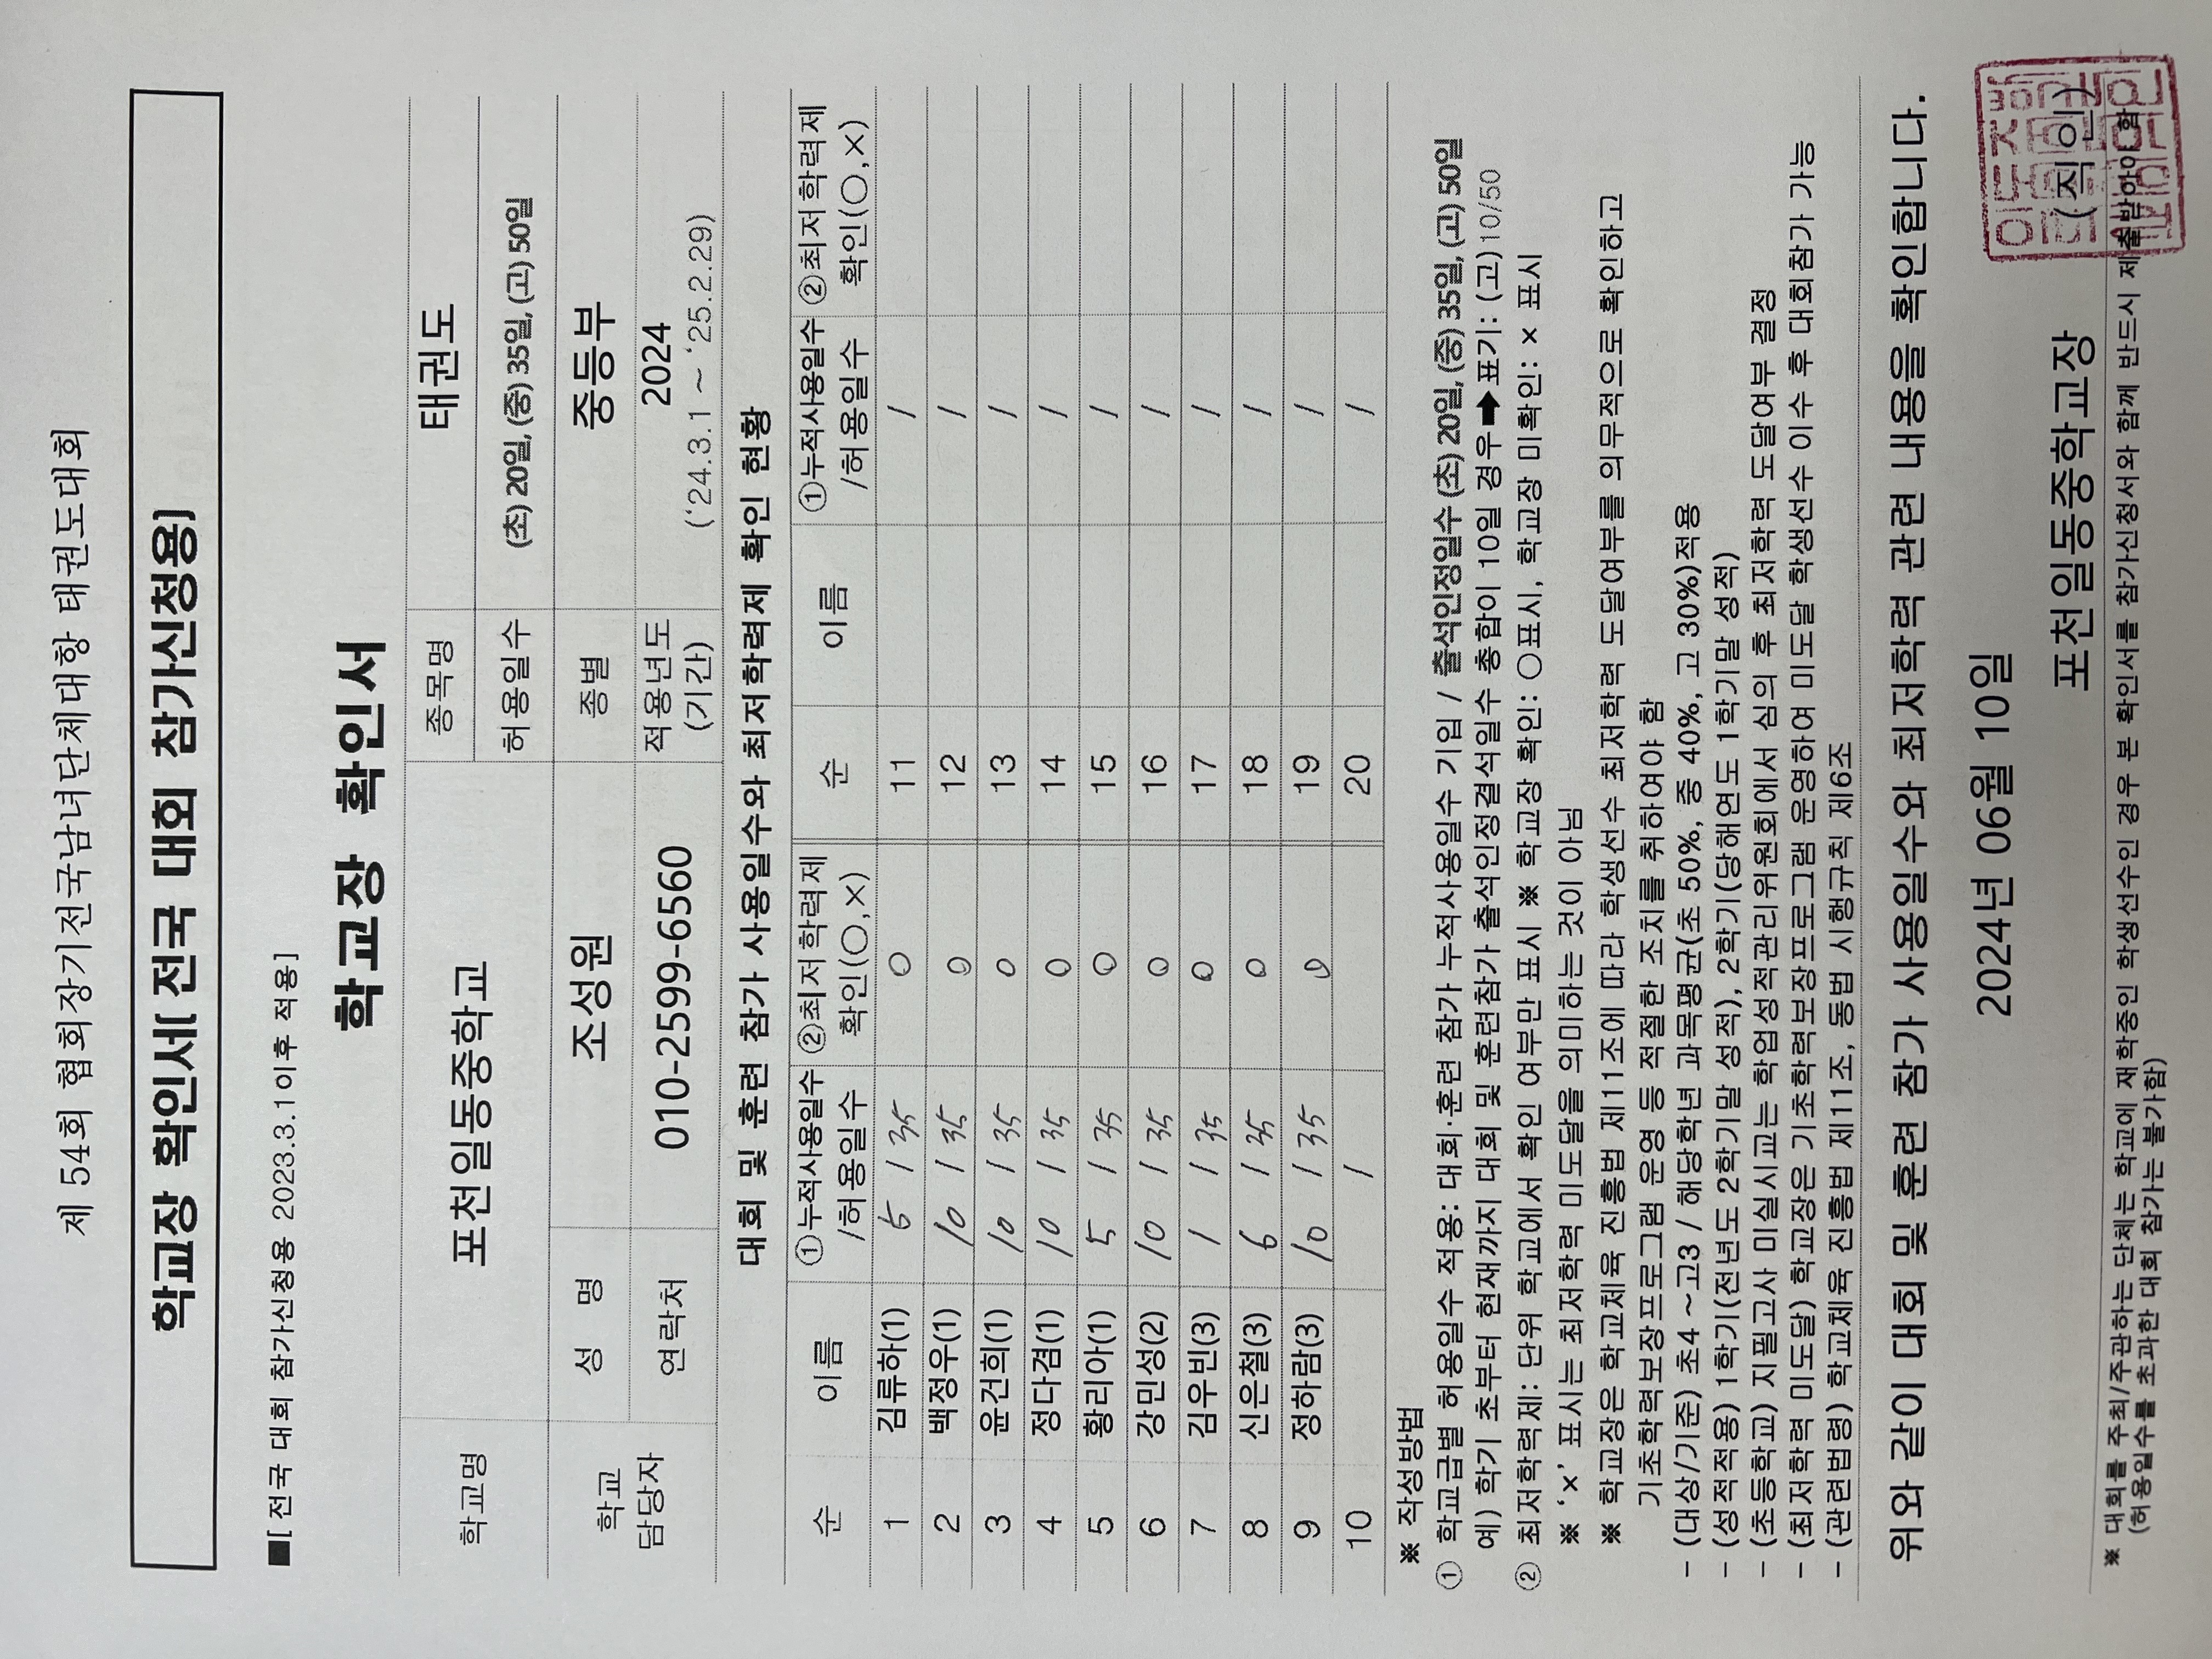 제 54회 협회장기전국남녀단체대항 태권도대회
학교장 확인서[전국 대회 참가신청용]
■[전국 대회 참가신청용 2023.3.1이후 적용]
학교장 확인서
학교명 포천일동중학교 종목명 태권도
허용일수 (초) 20일, (중) 35일, (고) 50일
학교 담당자 성 명 조성원 종별 중등부
연락처 010-2599-6560 적용년도 (기간) 2024
('24.3.1 ~ '25.2.29)
대회 및 훈련 참가 사용일수와 최저학력제 확인 현황
순 이름 ①누적사용일수 /허용일수 ②최저학력제 확인(○,×) 순 이름 ①누적사용일수 /허용일수 ②최저학력제 확인(○,×)
1 김류하(1) 5 / 35 ○ 11 /
2 백정우(1) 10 / 35 ○ 12 /
3 윤건희(1) 10 / 35 ○ 13 /
4 정다겸(1) 10 / 35 ○ 14 /
5 황리아(1) 5 / 35 ○ 15 /
6 강민성(2) 10 / 35 ○ 16 /
7 김우빈(3) 1 / 35 ○ 17 /
8 신은철(3) 6 / 35 ○ 18 /
9 정하람(3) 10 / 35 ○ 19 /
10 / 20 /
※ 작성방법
① 학교급별 허용일수 적용: 대회·훈련 참가 누적사용일수 기입 / 출석인정일수 (초) 20일, (중) 35일, (고) 50일
예) 학기 초부터 현재까지 대회 및 훈련참가 출석인정결석일수 총합이 10일 경우➡표기: (고)10/50
② 최저학력제: 단위 학교에서 확인 여부만 표시 ※ 학교장 확인: ○표시, 학교장 미확인: × 표시
※ '×' 표시는 최저학력 미도달을 의미하는 것이 아님
※ 학교장은 학교체육 진흥법 제11조에 따라 학생선수 최저학력 도달여부를 의무적으로 확인하고
기초학력보장프로그램 운영 등 적절한 조치를 취하여야 함
- (대상/기준) 초4 ~고3 / 해당학년 과목평균(초 50%, 중 40%, 고 30%)적용
- (성적적용) 1학기(전년도 2학기말 성적), 2학기(당해연도 1학기말 성적)
- (초등학교) 지필고사 미실시교는 학업성적관리위원회에서 심의 후 최저학력 도달여부 결정
- (최저학력 미도달) 학교장은 기초학력보장프로그램 운영하여 미도달 학생선수 이수 후 대회참가 가능
- (관련법령) 학교체육 진흥법 제11조, 동법 시행규칙 제6조
위와 같이 대회 및 훈련 참가 사용일수와 최저학력 관련 내용을 확인합니다.
2024년 06월 10일
포천일동중학교장 (직인)
※ 대회를 주최/주관하는 단체는 학교에 재학중인 학생선수인 경우 본 확인서를 참가신청서와 함께 반드시 제출받아야 함
(허용일수를 초과한 대회 참가는 불가함)